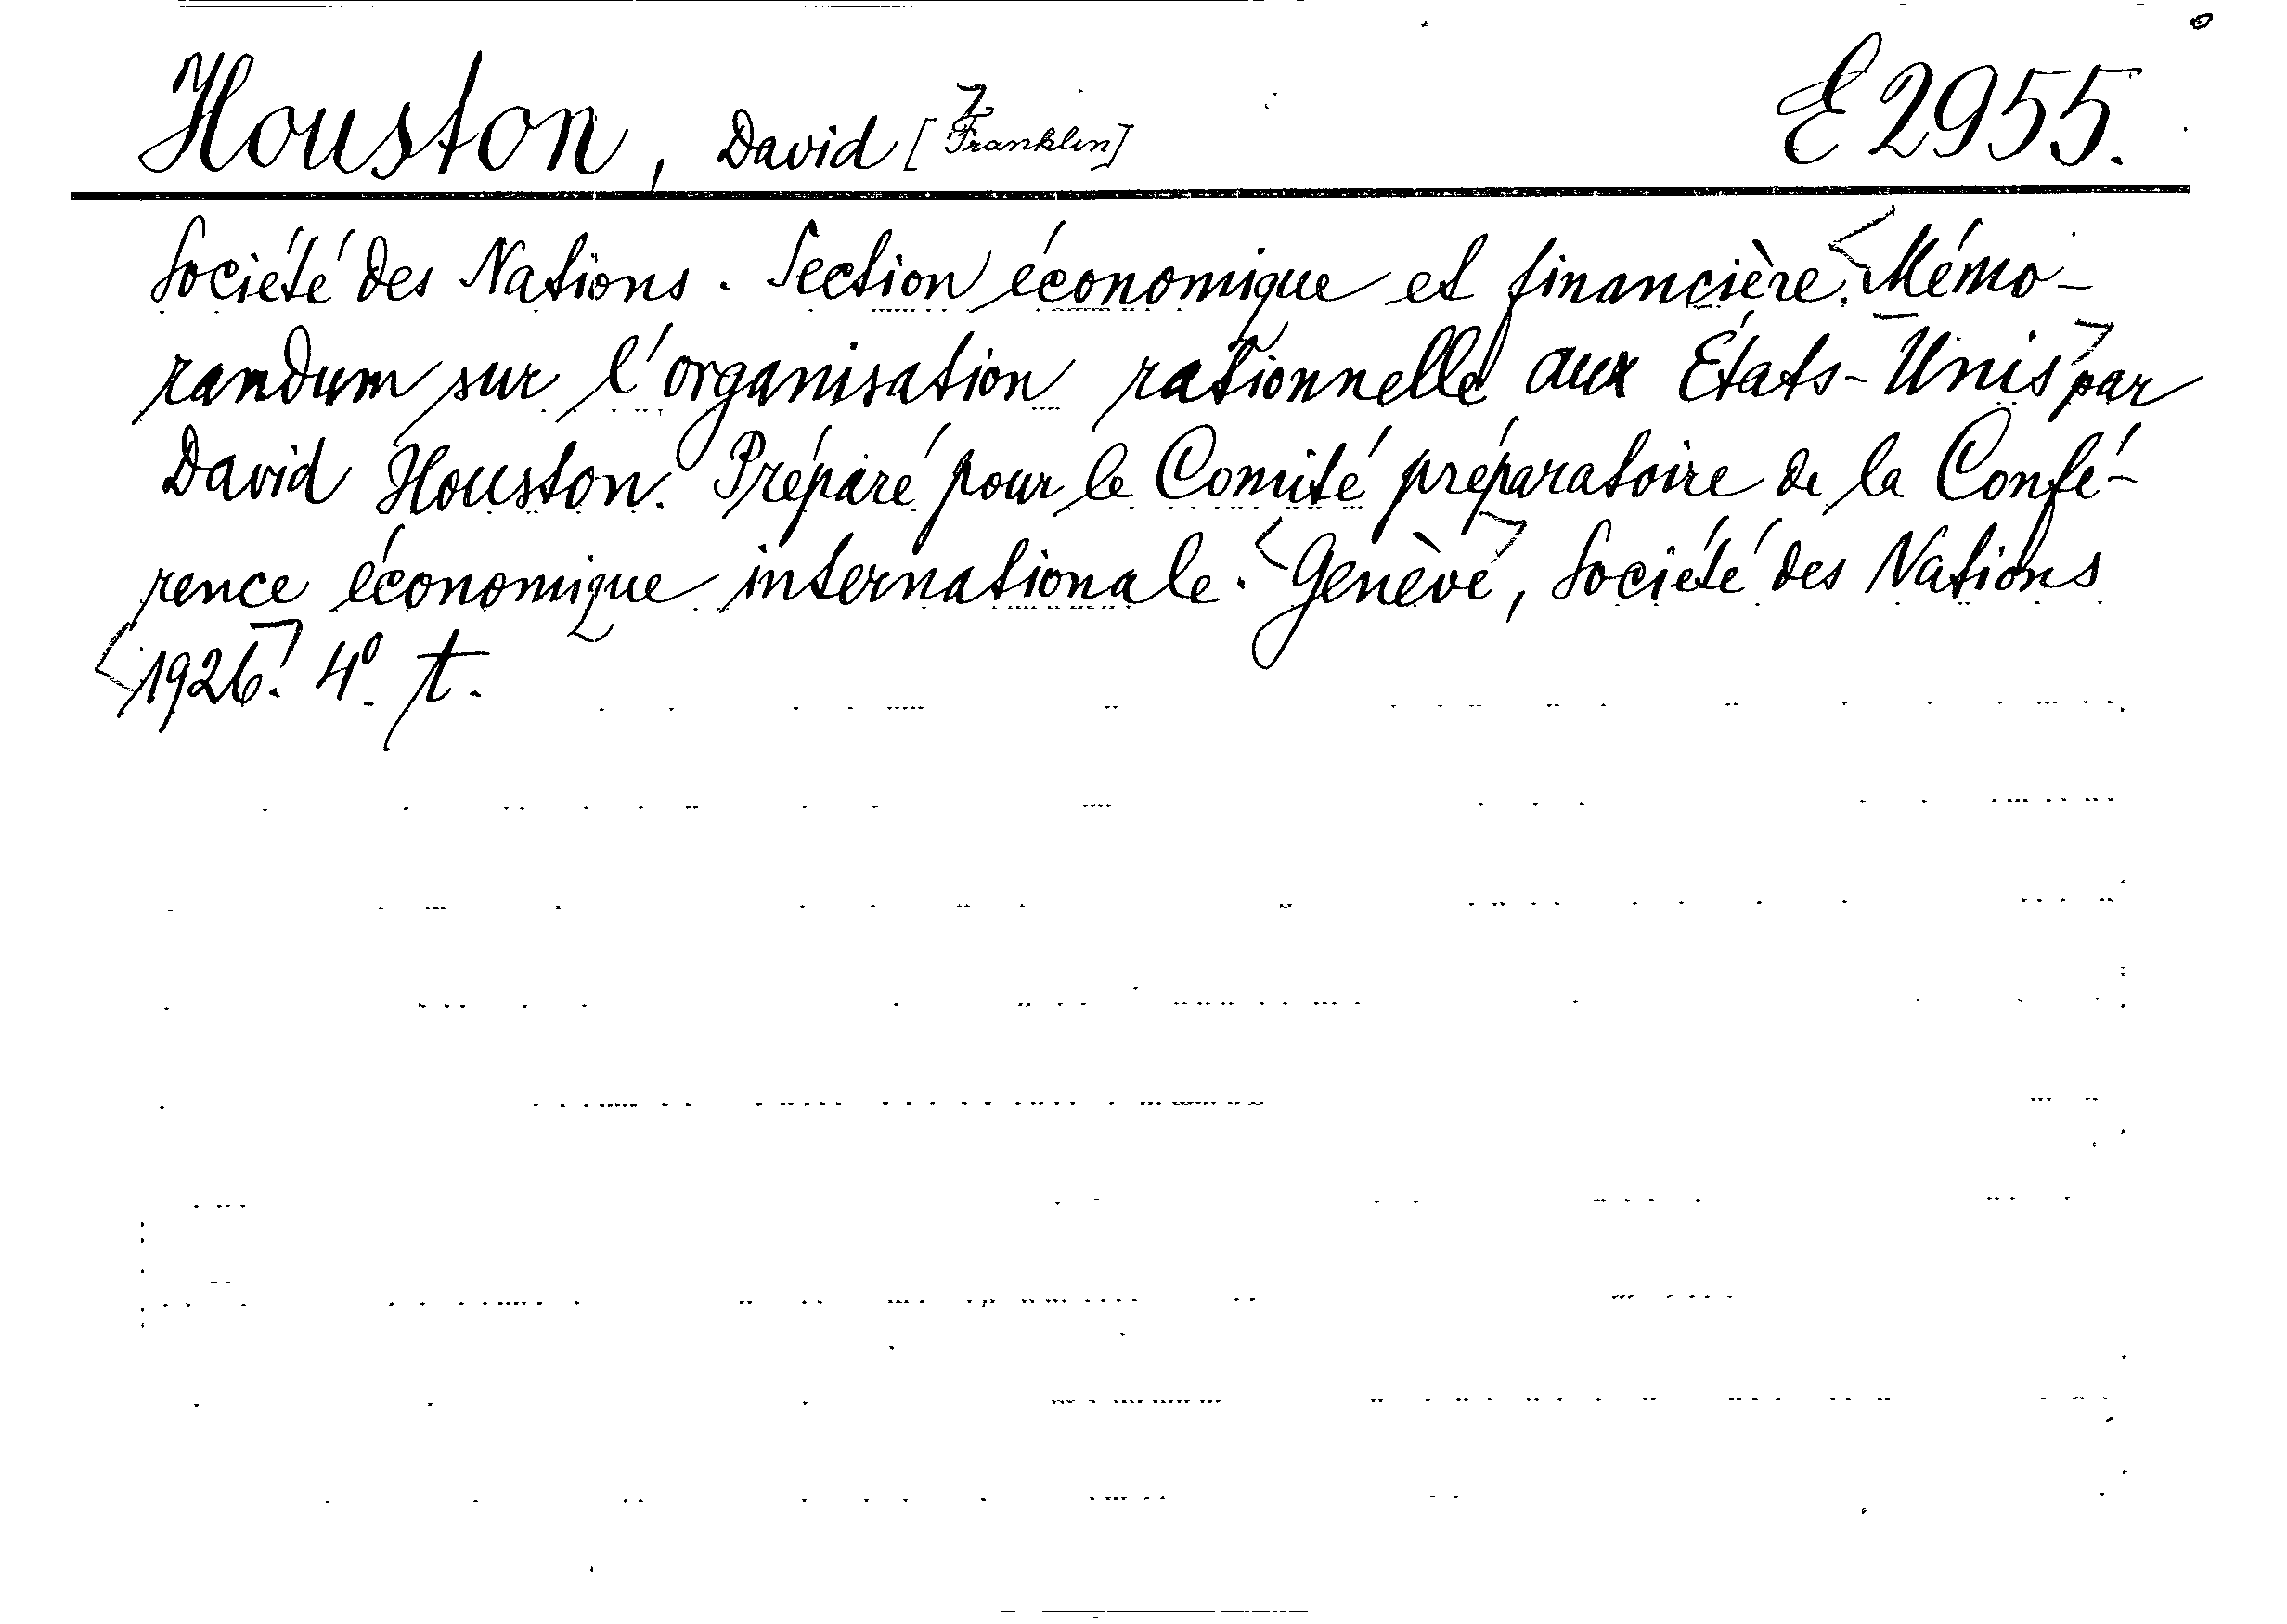 Houston, David [Franklin] E 2955.
Société des Nations. Section économique et financière. <Mémo-
randum sur l'organisation rationnelle aux États-Unis> par
David Houston. Préparé pour le Comité préparatoire de la Confé-
rence économique internationale. <Genève>, Société des Nations
<1926>. 4º. t.